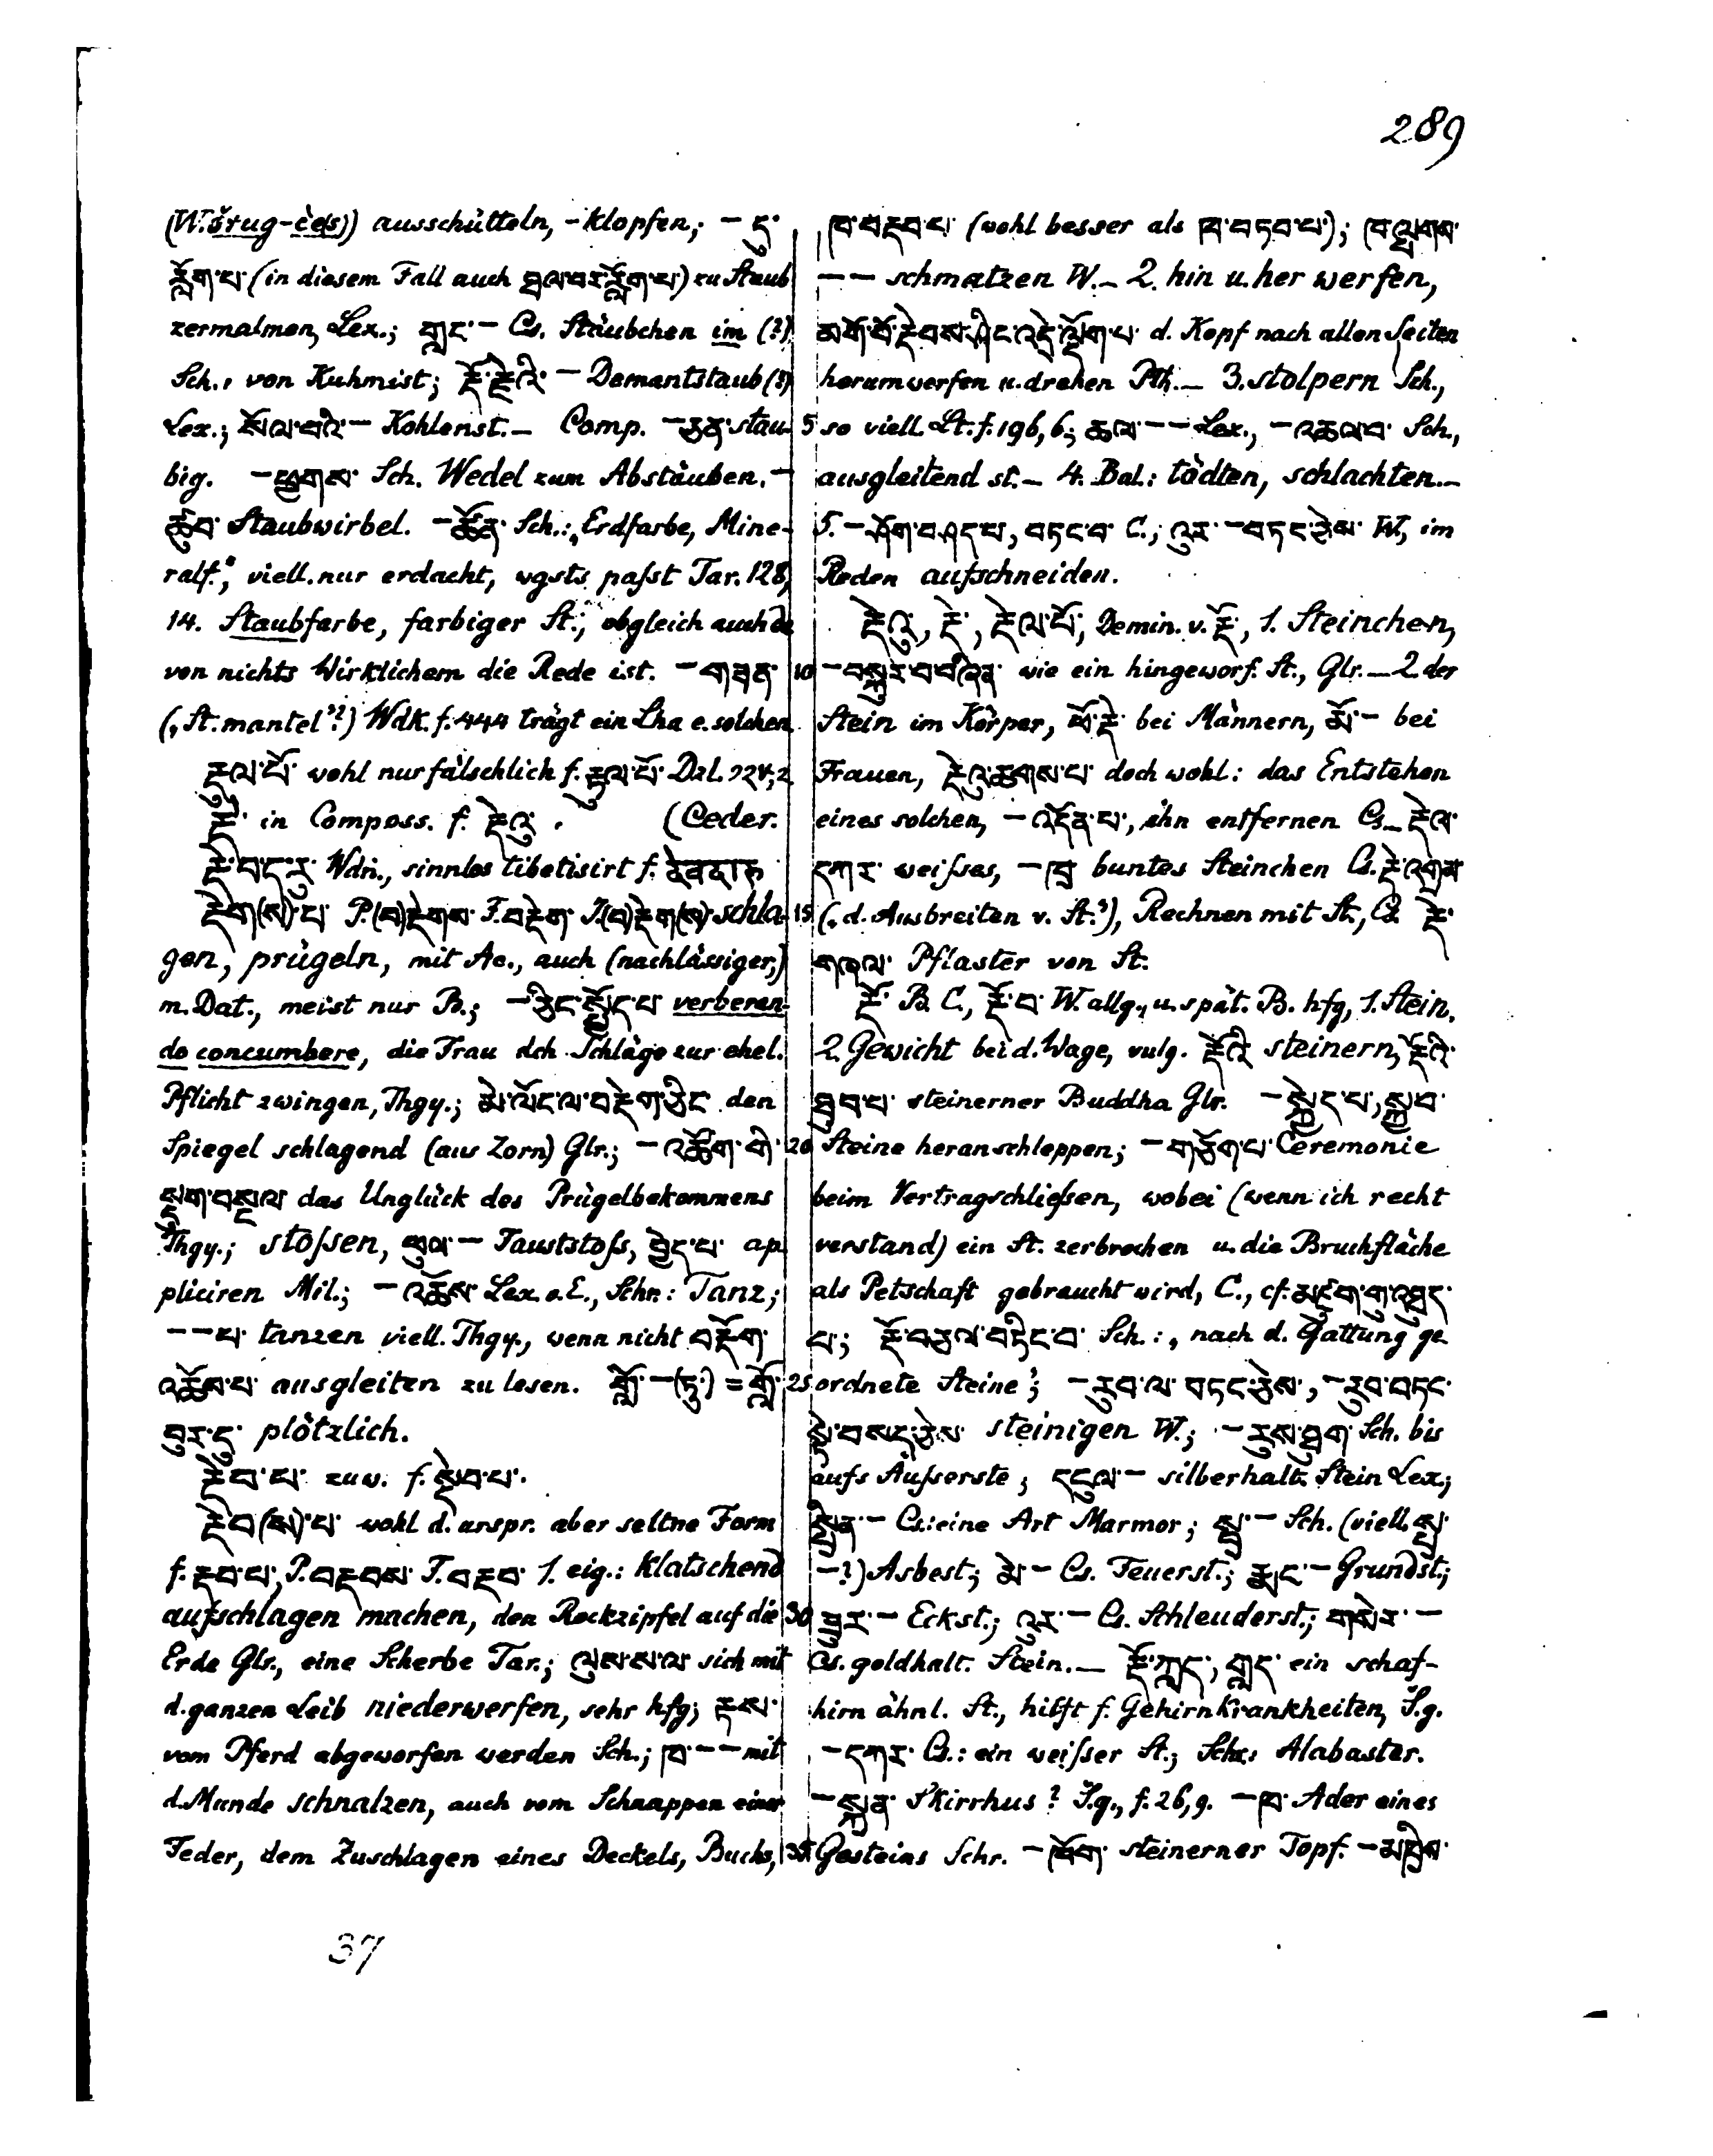 289
(W. šrug-čes)) ausschütteln, -klopfen; — དུ་
རློག་པ་ (in diesem Fall auch ཐལ་བར་རློག་པ་) zu Staub
zermalmen, Lex.; གླང་ — Cs. Stäubchen im (?)
Sch., von Kuhmist; རྡོ་རྗེའི་ — Demantstaub (?)
Lex.; སོལ་བའི་ — Kohlenst. — Comp. — ཅན་ stau-
big. — ཕྱགས་ Sch. Wedel zum Abstäuben. —
ཚུབ་ Staubwirbel. — ཚོན་ Sch.: „Erdfarbe, Mine-
ralf.“, viell. nur erdacht, wgsts paſst Tar. 128,
14. Staubfarbe, farbiger St., obgleich auch da
von nichts Wirklichem die Rede ist. — གཟན་
(„St. mantel“?) Wdk. f. 444 trägt ein Lha e. solchen
རྡུལ་པོ་ wohl nur fälschlich f. རྟུལ་པོ་ Dzl. 224, 2
རྡེ་ in Composs. f. རྡེའུ་. (Ceder.
རྡེ་བ་དཱ་རུ་ Wdn., sinnlos tibetisirt f. देवदारु
རྡེག(ས)་པ་ P. (བ)རྡེགས་ F. བརྡེག་ I. (བ)རྡེག(ས)་ schla-
gen, prügeln, mit Ac., auch (nachlässiger,)
m. Dat., meist nur B.; — ཅིང་སྤྱོད་པ་ verberan-
do concumbere, die Frau dch Schläge zur ehel.
Pflicht zwingen, Thgy.; མེ་ལོང་ལ་བརྡེག་ཅིང་ den
Spiegel schlagend (aus Zorn) Glr.; — འཚོག་གི་
སྡུག་བསྔལ་ das Unglück des Prügelbekommens
Thgy.; stoſsen, ཁུལ་ — Fauststoſs, བྱེད་པ་ ap-
pliciren Mil.; — འཆོས་ Lex. o. E., Schr.: Tanz;
— — པ་ tanzen viell. Thgy., wenn nicht བརྡོག་
འཆོས་པ་ ausgleiten zu lesen. གློ་ — (ཏུ་) = གློ་
བུར་དུ་ plötzlich.
རྡེབ་པ་ zuw. f. སྡེབ་པ་.
རྡེབ(ས)་པ་ wohl d. urspr. aber seltne Form
f. རྡབ་པ་, P. བརྡབས་ F. བརྡབ་ 1. eig.: klatschend
aufschlagen machen, den Rockzipfel auf die
Erde Glr., eine Scherbe Tar.; ལུས་ས་ལ་ sich mit
d. ganzen Leib niederwerfen, sehr hfg; རྟས་
vom Pferd abgeworfen werden Sch.; ཁ་ — — mit
d. Munde schnalzen, auch vom Schnappen einer
Feder, dem Zuschlagen eines Deckels, Buchs,
ཁ་བརྡབ་པ་ (wohl besser als ཁ་བཏབ་པ་); ཁ་ལྡགས་
— — schmatzen W. — 2. hin u. her werfen,
མགོ་བོ་རྡེབས་ཤིང་འདྲེ་ལྡོག་པ་ d. Kopf nach allen Seiten
herumwerfen u. drehen Pth. — 3. stolpern Sch.,
5 so viell. Lt. f. 196, 6; ཆལ་ — — Lex., — འཆལ་བ་ Sch.,
ausgleitend st. — 4. Bal.: tödten, schlachten. —
5. — ཤོག་བཤད་པ་, བཏང་བ་ C.; འུར་ — བཏང་ཅེས་ W., im
Reden aufschneiden.
རྡེའུ་, རྡེ་, རྡེལ་པོ་, Demin. v. རྡོ་, 1. Steinchen,
10 — བསྐུར་བ་བཞིན་ wie ein hingeworf. St., Glr. — 2. der
Stein im Körper, ཕོ་རྡེ་ bei Männern, མོ་ — bei
Frauen, རྡེའུ་ཆགས་པ་ doch wohl: das Entstehen
eines solchen, — འདོན་པ་, ihn entfernen Cs. — རྡེལ་
དཀར་ weiſses, — ཁྲ་ buntes Steinchen Cs. རྡེ་འགྲེམ་
15 („d. Ausbreiten v. St.“), Rechnen mit St., Cs. རྡེ་
གཅལ་ Pflaster von St.
རྡོ་ B. C., རྡོ་བ་ W. allg., u. spät. B. hfg, 1. Stein,
2. Gewicht bei d. Wage, vulg. རྡོའི་ steinern, རྡོའི་
ཐུབ་པ་ steinerner Buddha Glr. — སྐྱེད་པ་, སྐྱབ་
20 Steine heranschleppen; — གཅོག་པ་ Ceremonie
beim Vertragschlieſsen, wobei (wenn ich recht
verstand) ein St. zerbrochen u. die Bruchfläche
als Petschaft gebraucht wird, C., cf. མཛུག་གུ་འཐུད་
པ་; རྡོ་བཅལ་བཏིང་བ་ Sch.: „nach d. Gattung ge
25 ordnete Steine“; — རུབ་ལ་བཏང་ཅེས་, — རུབ་བཏང་
སྟེ་བསད་ཅེས་ steinigen W.; — རུས་ཐུག་ Sch. bis
aufs Äuſserste; དངུལ་ — silberhalt. Stein Lex.;
སྤྲིན་ — Cs.: eine Art Marmor; སྤྲ་ — Sch. (viell. སྦྲ་
— ?) Asbest; མེ་ — Cs. Feuerst.; རྨང་ — Grundst.;
30 ཟུར་ — Eckst.; འུར་ — Cs. Schleuderst.; གསེར་ —
Cs. goldhalt. Stein. — རྡོ་ཀླད་, གླད་ ein schaf-
hirn ähnl. St., hilft f. Gehirnkrankheiten, S.g.
— དཀར་ Cs.: ein weiſser St.; Schr.: Alabaster.
— སྐྲན་ Skirrhus? S.g., f. 26, 9. — ཁ་ Ader eines
35 Gesteins Schr. — ཁོག་ steinerner Topf. — མཁྲིས་
37